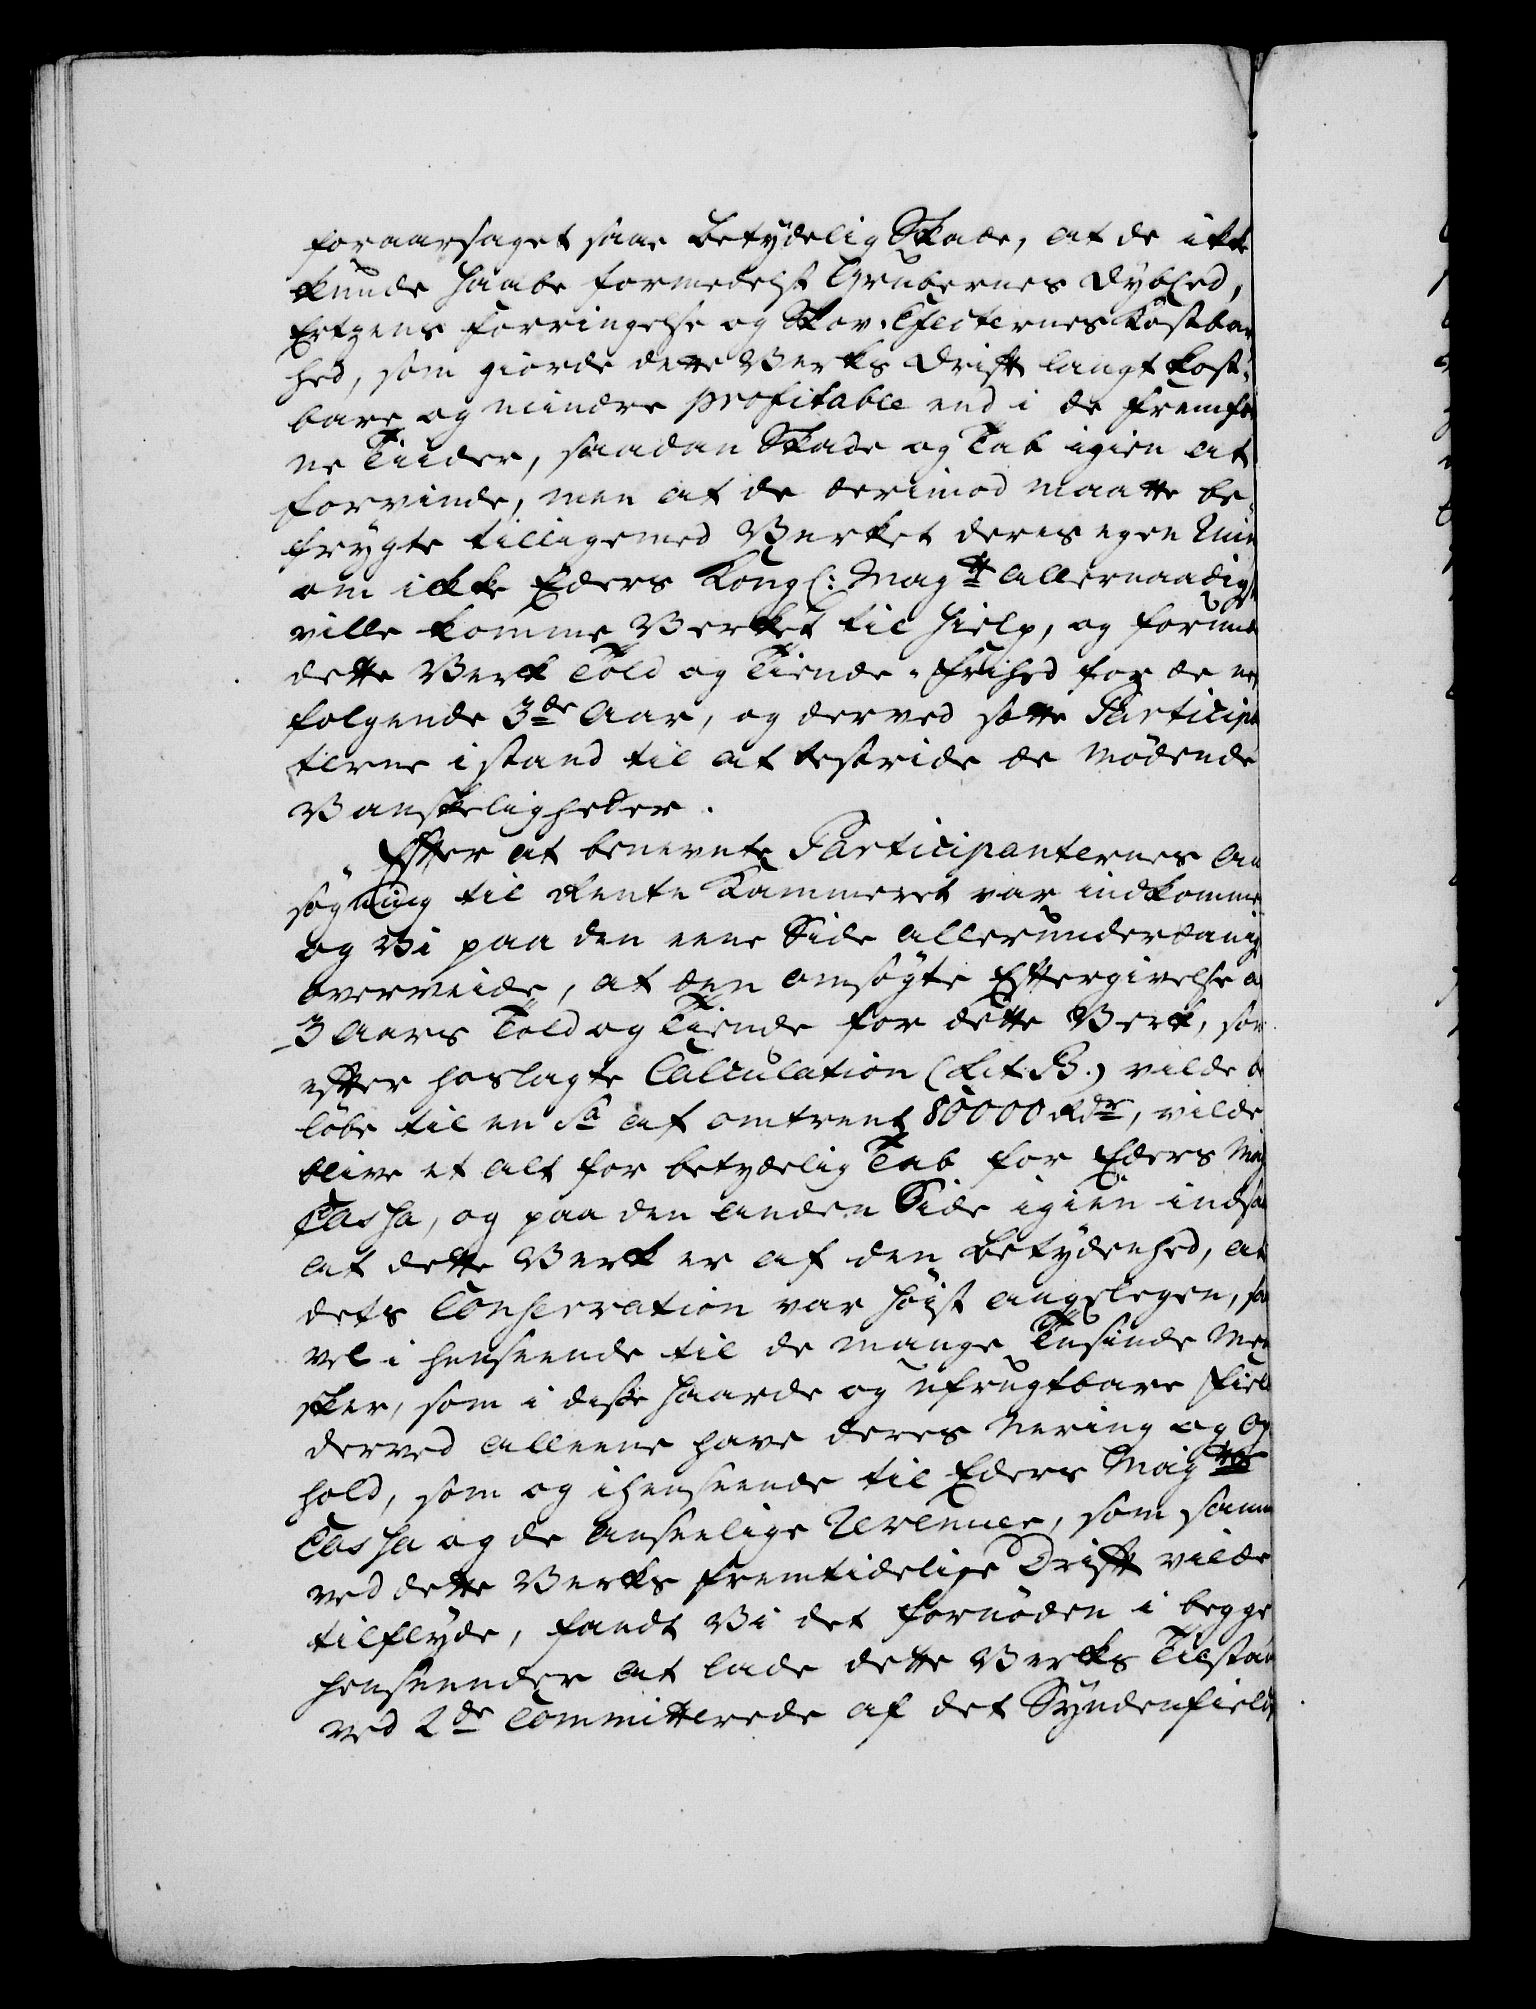 foraarsaget saae betydelig Skade, at de ikke
kunde haabe formedelst Grubernes Dybhed,
Ertzens Forringelse og Skov-Effecternes Kostbar
hed, som giorde dette Verks Drift langt kost-
bare og mindre profitable end i de fremfa
ne Tiider, saadan Skade og Tab igien at
forvinde, men at de derimod maatte be-
frygte tilligemed Verket deres egen Ruin
om ikke Eders Kongl: Mayt allernaadigst
ville komme Verket til Hielp, og forund
dette Verk Told og Tiende-Frihed for de ne
folgende 3de Aar, og derved sætte Particip
terne i stand til at bestride de mødende
Vanskeligheder.
Efter at benevnte Participanternes An
søgning til Rente Kammeret var indkomme
og Vi paa den eene Side allerunderdanigst
overveiede, at den ansøgte Eftergivelse a
3 Aars Told og Tiende for dette Verk, som
efter hoslagte Calculation (Lit. B.) vilde be
løbe til en Sa af omtrent 80000 Rdr, vilde
blive et alt for betydelig Tab for Eders May
Cassa, og paa den anden Side igien indsaa
at dette Verk er af den Betydenhed, at
dets Conservation var høist angelegen, saa
vel i henseende til de mange Tusinde Men
sker, som i disse haarde og ufrugtbare Field
derved alleene have deres Næring og Op
hold, som og i henseende til Eders Mayts
Cassa og de anseelige Revenuer, som samme
ved dette Verks fremtidelige Drift vilde
tilflyde, fandt Vi det fornøden i begge
henseender at lade dette Verks Tilstan
ved 2de Committerede af det Syndenfields